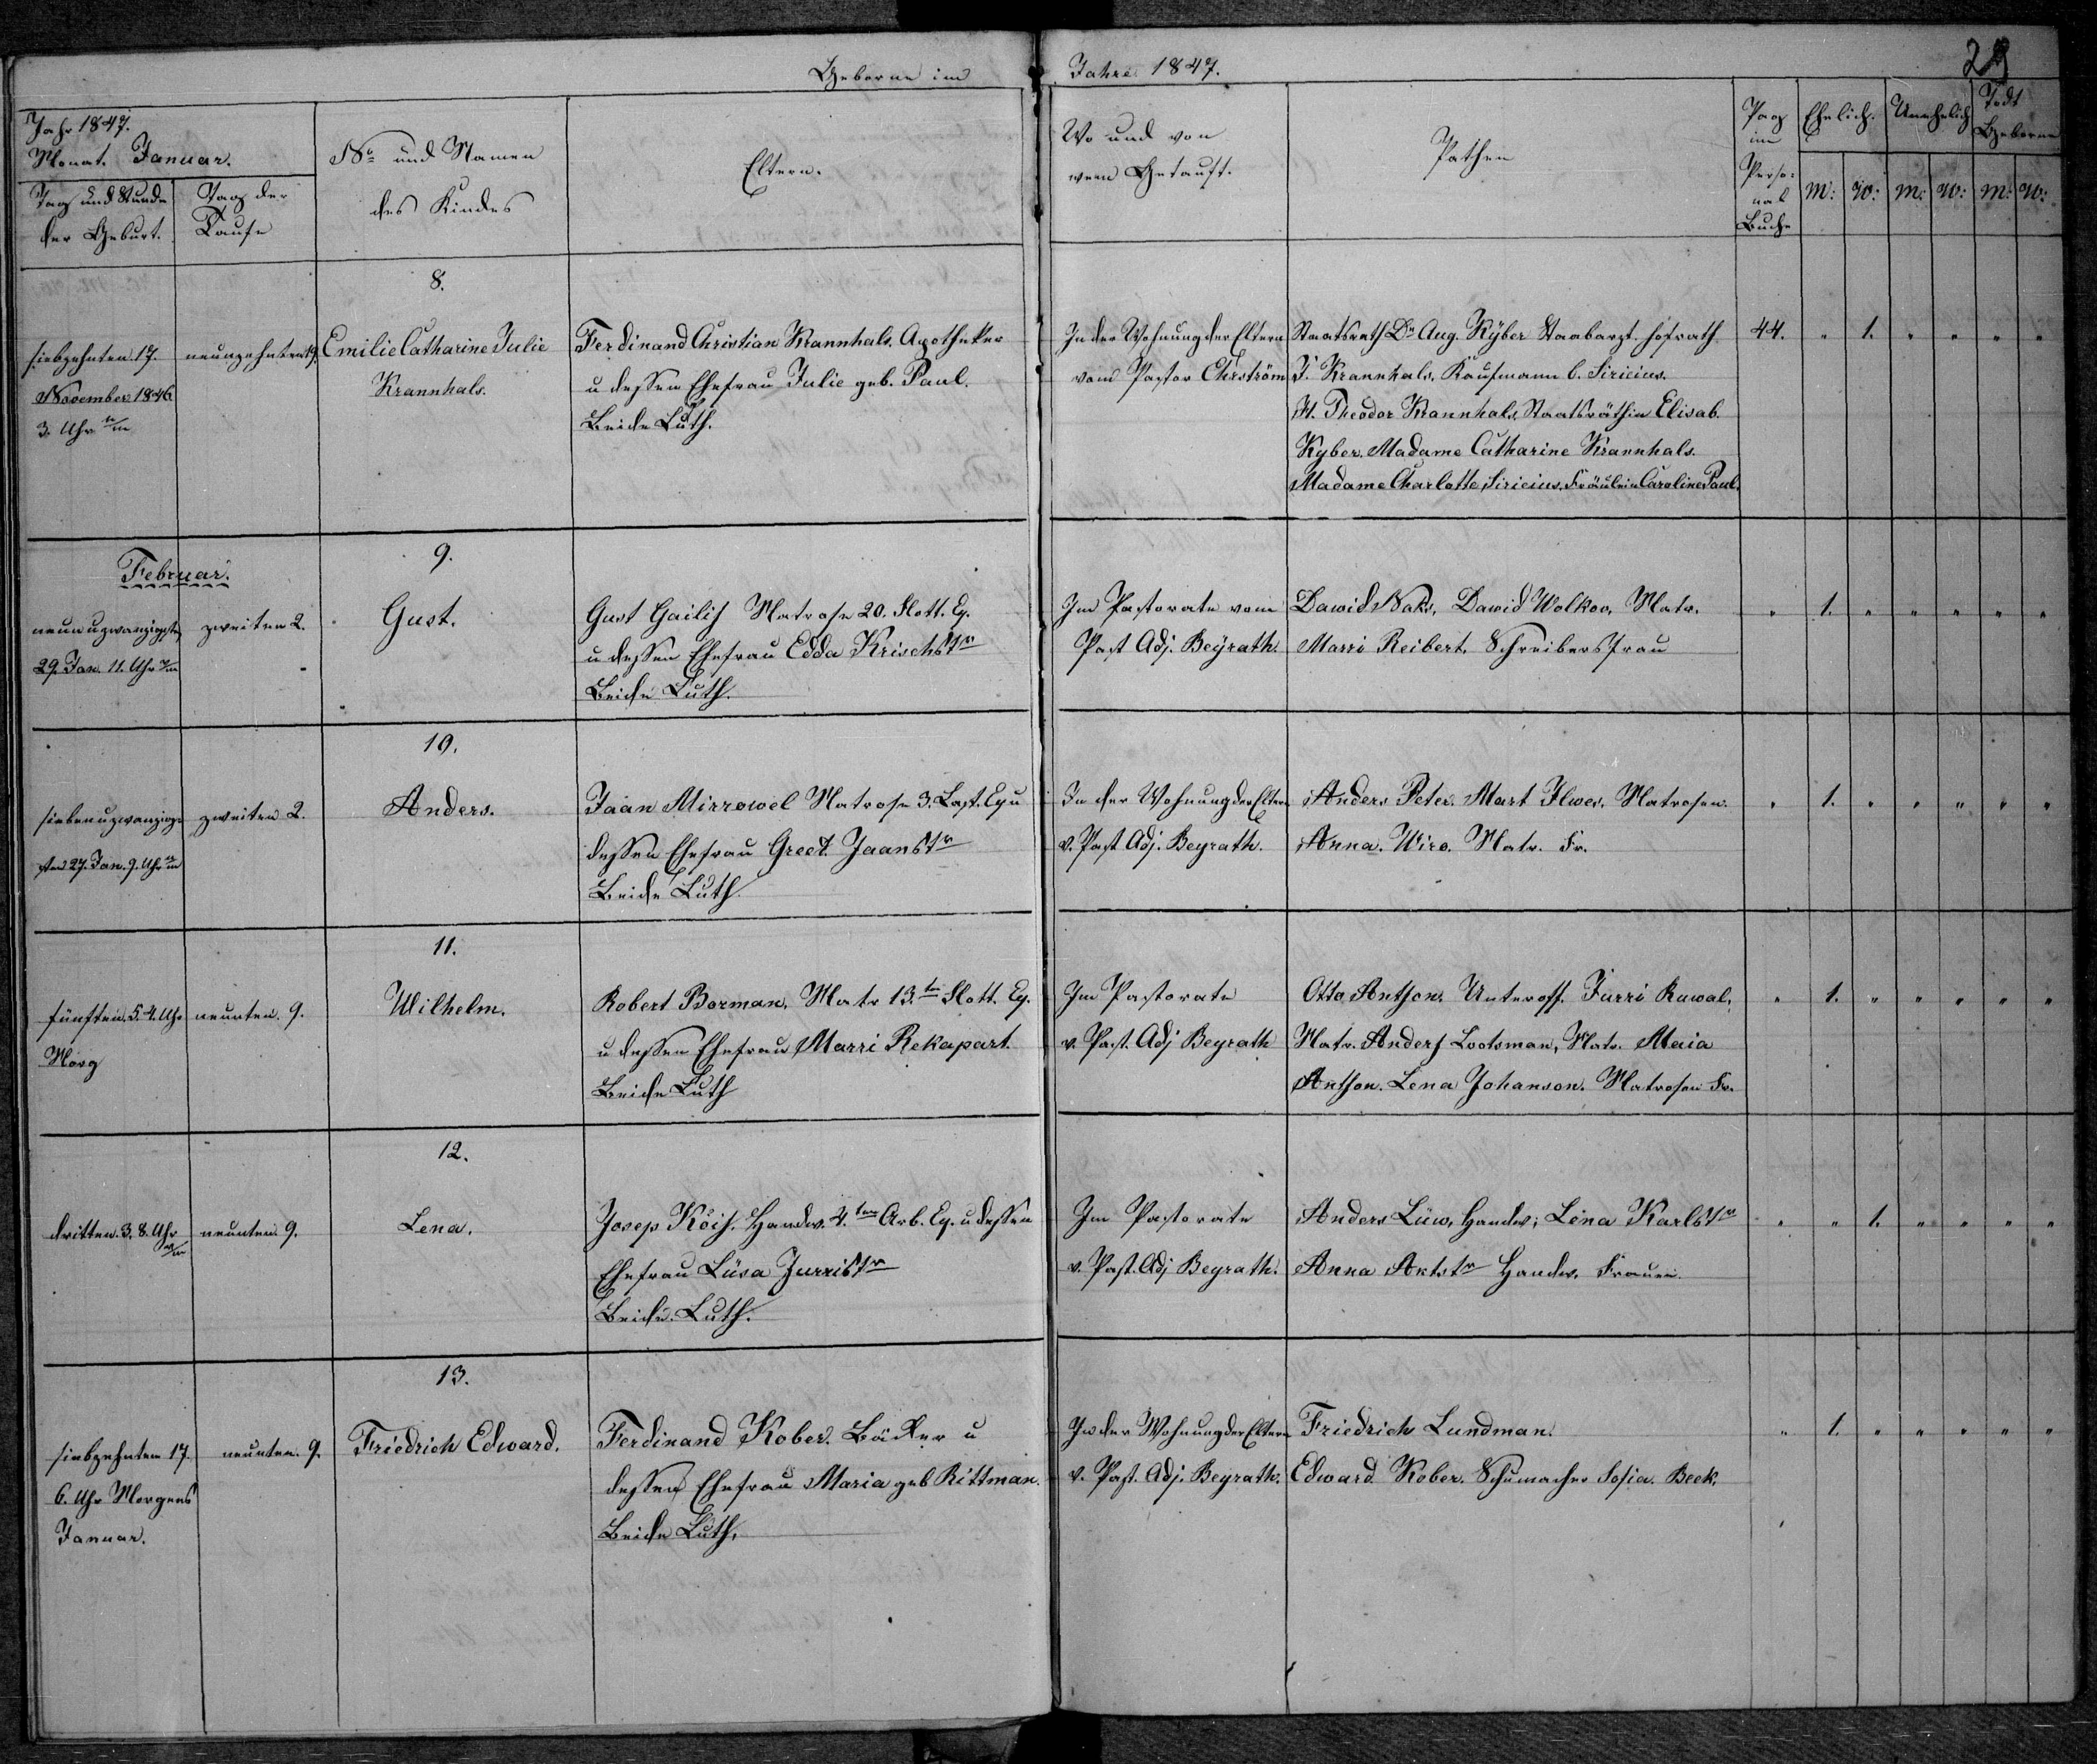 Geborne im Jahre 1847.
29
Jahr 1847.
Monat. Januar.
Tag und Stunde
der Geburt.
Tag der
Taufe
No und Namen
des Kindes
Eltern.
Wo und von
wem Getauft.
Pathen
Pag
im
Perso-
nal
Buche
Ehelich.
Unehelich
Todt
Geborne
m: w: m: w: m: w:
8.
siebzehnten 17.
November 1846
3. Uhr n/m
neunzehnten 19.
Emilie Catharine Julie
Krannhals.
Ferdinand Christian Krannhals. Apotheker
u dessen Ehefrau Julie geb. Paul.
Beide Luth.
In der Wohnung der Eltern
vom Pastor Ehrström
Staatsrath Dr Aug. Kÿber Staabarzt. Hofrath
J. Krannhals. Kaufmann C. Siricius.
H. Theodor Krannhals, Staatsräthin Elisab.
Kyber. Madame Catharine Krannhals.
Madame Charlotte Siricius, Fräulein Caroline Paul.
44. " 1. " " " "
Februar.
9.
neunuzwanzigsten
29. Jan. 11. Uhr
zweiten 2.
Gust.
Gust Gailis Matrose 20. Flott. Eq.
u dessen Ehefrau Edda Krischstr
Beide Luth.
Im Pastorate vom
Past Adj. Beÿrath.
Dawid Naks, Dawid Wolkov, Matr.
Marri Reibert. Schreibersfrau
" 1. " " " " "
10.
siebenuzwanzig-
sten 27. Jan. 9. Uhr
zweiten 2.
Anders.
Jaan Mirrowel Matrose 3. Last. Eq u
dessen Ehefrau Greet Jaanstr
Beide Luth.
In der Wohnung der Eltern
v. Past Adj. Beyrath.
Anders Peter. Mart Ilwes. Matrosen.
Anna. Wiro. Matr. Fr.
" 1. " " " " "
11.
fünften. 5. 4. Uhr
Morg
neunten. 9.
Wilhelm.
Robert Borman. Matr 13.t Flott. Eq.
u dessen Ehefrau Marri Rekapart.
Beide Luth
Im Pastorate
v. Past. Adj Beyrath
Otto Antson. Unteroff. Jurri Kuwal,
Matr. Anders Lootsman, Matr. Maia
Antson. Lena Johanson. Matrosen Fr.
" 1. " " " " "
12.
dritten. 3. 8. Uhr
n/m
neunten. 9.
Lena.
Josep Köis. Handw. 4.ten Arb. Eq. u dessen
Ehefrau Lüsa Jurristr
Beide. Luth.
Im Pastorate
v. Past. Adj Beyrath.
Anders Lüw, Handw; Lena Karlstr
Anna Antstr Handw. Frauen.
" " 1. " " " "
13.
siebzehnten 17.
6. Uhr Morgens
Januar.
neunten. 9.
Friedrich Edward.
Ferdinand Kober. Bäcker u
dessen Ehefrau Maria geb Rittman.
Beide Luth.
In der Wohnung der Eltern
v. Past. Adj. Beyrath.
Friedrich Lundman.
Edward Kober. Schumacher Sofia. Beek.
" 1. " " " " "